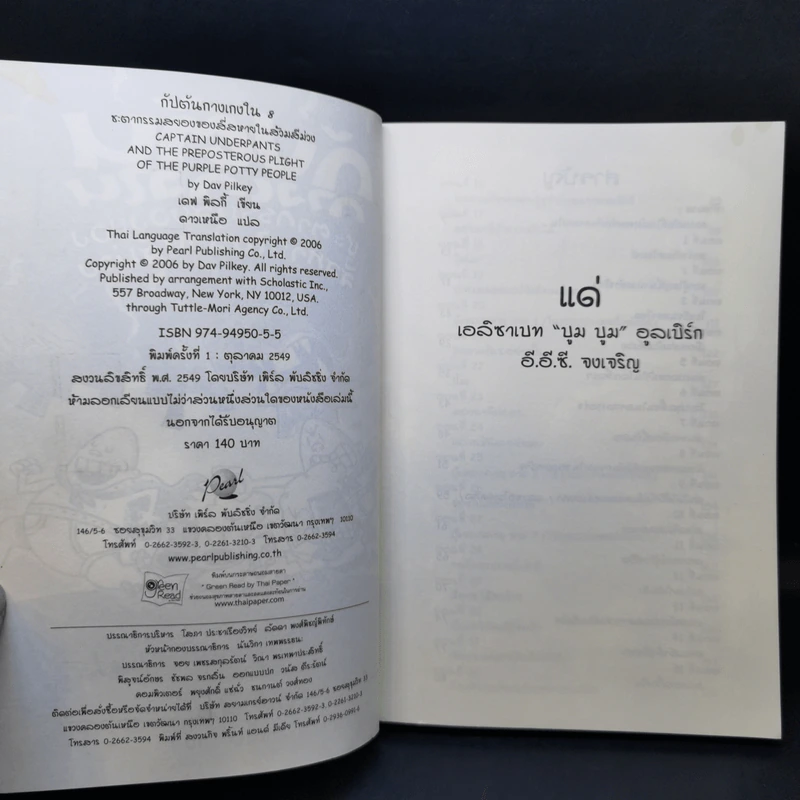 กัปตันกางเกงใน 8
ชะตากรรมสยองของสี่สหายในส้วมสีม่วง
CAPTAIN UNDERPANTS
AND THE PREPOSTEROUS PLIGHT
OF THE PURPLE POTTY PEOPLE
by Dav Pilkey
เดฟ พิลกี้ เขียน
ดาวเหนือ แปล
Thai Language Translation copyright © 2006
by Pearl Publishing Co., Ltd.
Copyright © 2006 by Dav Pilkey. All rights reserved.
Published by arrangement with Scholastic Inc.,
557 Broadway, New York, NY 10012, USA.
through Tuttle-Mori Agency Co., Ltd.
ISBN 974-94950-5-5
พิมพ์ครั้งที่ 1 : ตุลาคม 2549
สงวนลิขสิทธิ์ พ.ศ. 2549 โดยบริษัท เพิร์ล พับลิชชิ่ง จำกัด
ห้ามลอกเลียนแบบไม่ว่าส่วนหนึ่งส่วนใดของหนังสือเล่มนี้
นอกจากได้รับอนุญาต
ราคา 140 บาท
Pearl
บริษัท เพิร์ล พับลิชชิ่ง จำกัด
146/5-6 ซอยสุขุมวิท 33 แขวงคลองตันเหนือ เขตวัฒนา กรุงเทพฯ 10110
โทรศัพท์ 0-2662-3592-3, 0-2261-3210-3 โทรสาร 0-2662-3594
www.pearlpublishing.co.th
Green Read
พิมพ์บนกระดาษถนอมสายตา
"Green Read by Thai Paper"
www.thaipaper.com
บรรณาธิการบริหาร โสภา ประชาเรืองวิทย์ ลัดดา พงศ์พิชญ์พิทักษ์
หัวหน้ากองบรรณาธิการ นันวิกา เทพพรรธนะ
คอมพิวเตอร์
ติดต่อเพื่อสั่งซื้อหรือจัดจำหน่ายได้ที่ บริษัท สยามเกรย์ฮาวน์ จำกัด 146/5-6 ซอยสุขุมวิท 33
แขวงคลองตันเหนือ เขตวัฒนา กรุงเทพฯ 10110 โทรศัพท์ 0-2662-3592-3, 0-2261-3210-3
โทรสาร 0-2662-3594 พิมพ์ที่ สงวนกิจ พริ้นท์ แอนด์ มีเดีย โทรศัพท์
แด่
เอลิซาเบท "บูม บูม" อุลเบิร์ก
อี.อี.ซี. จงเจริญ